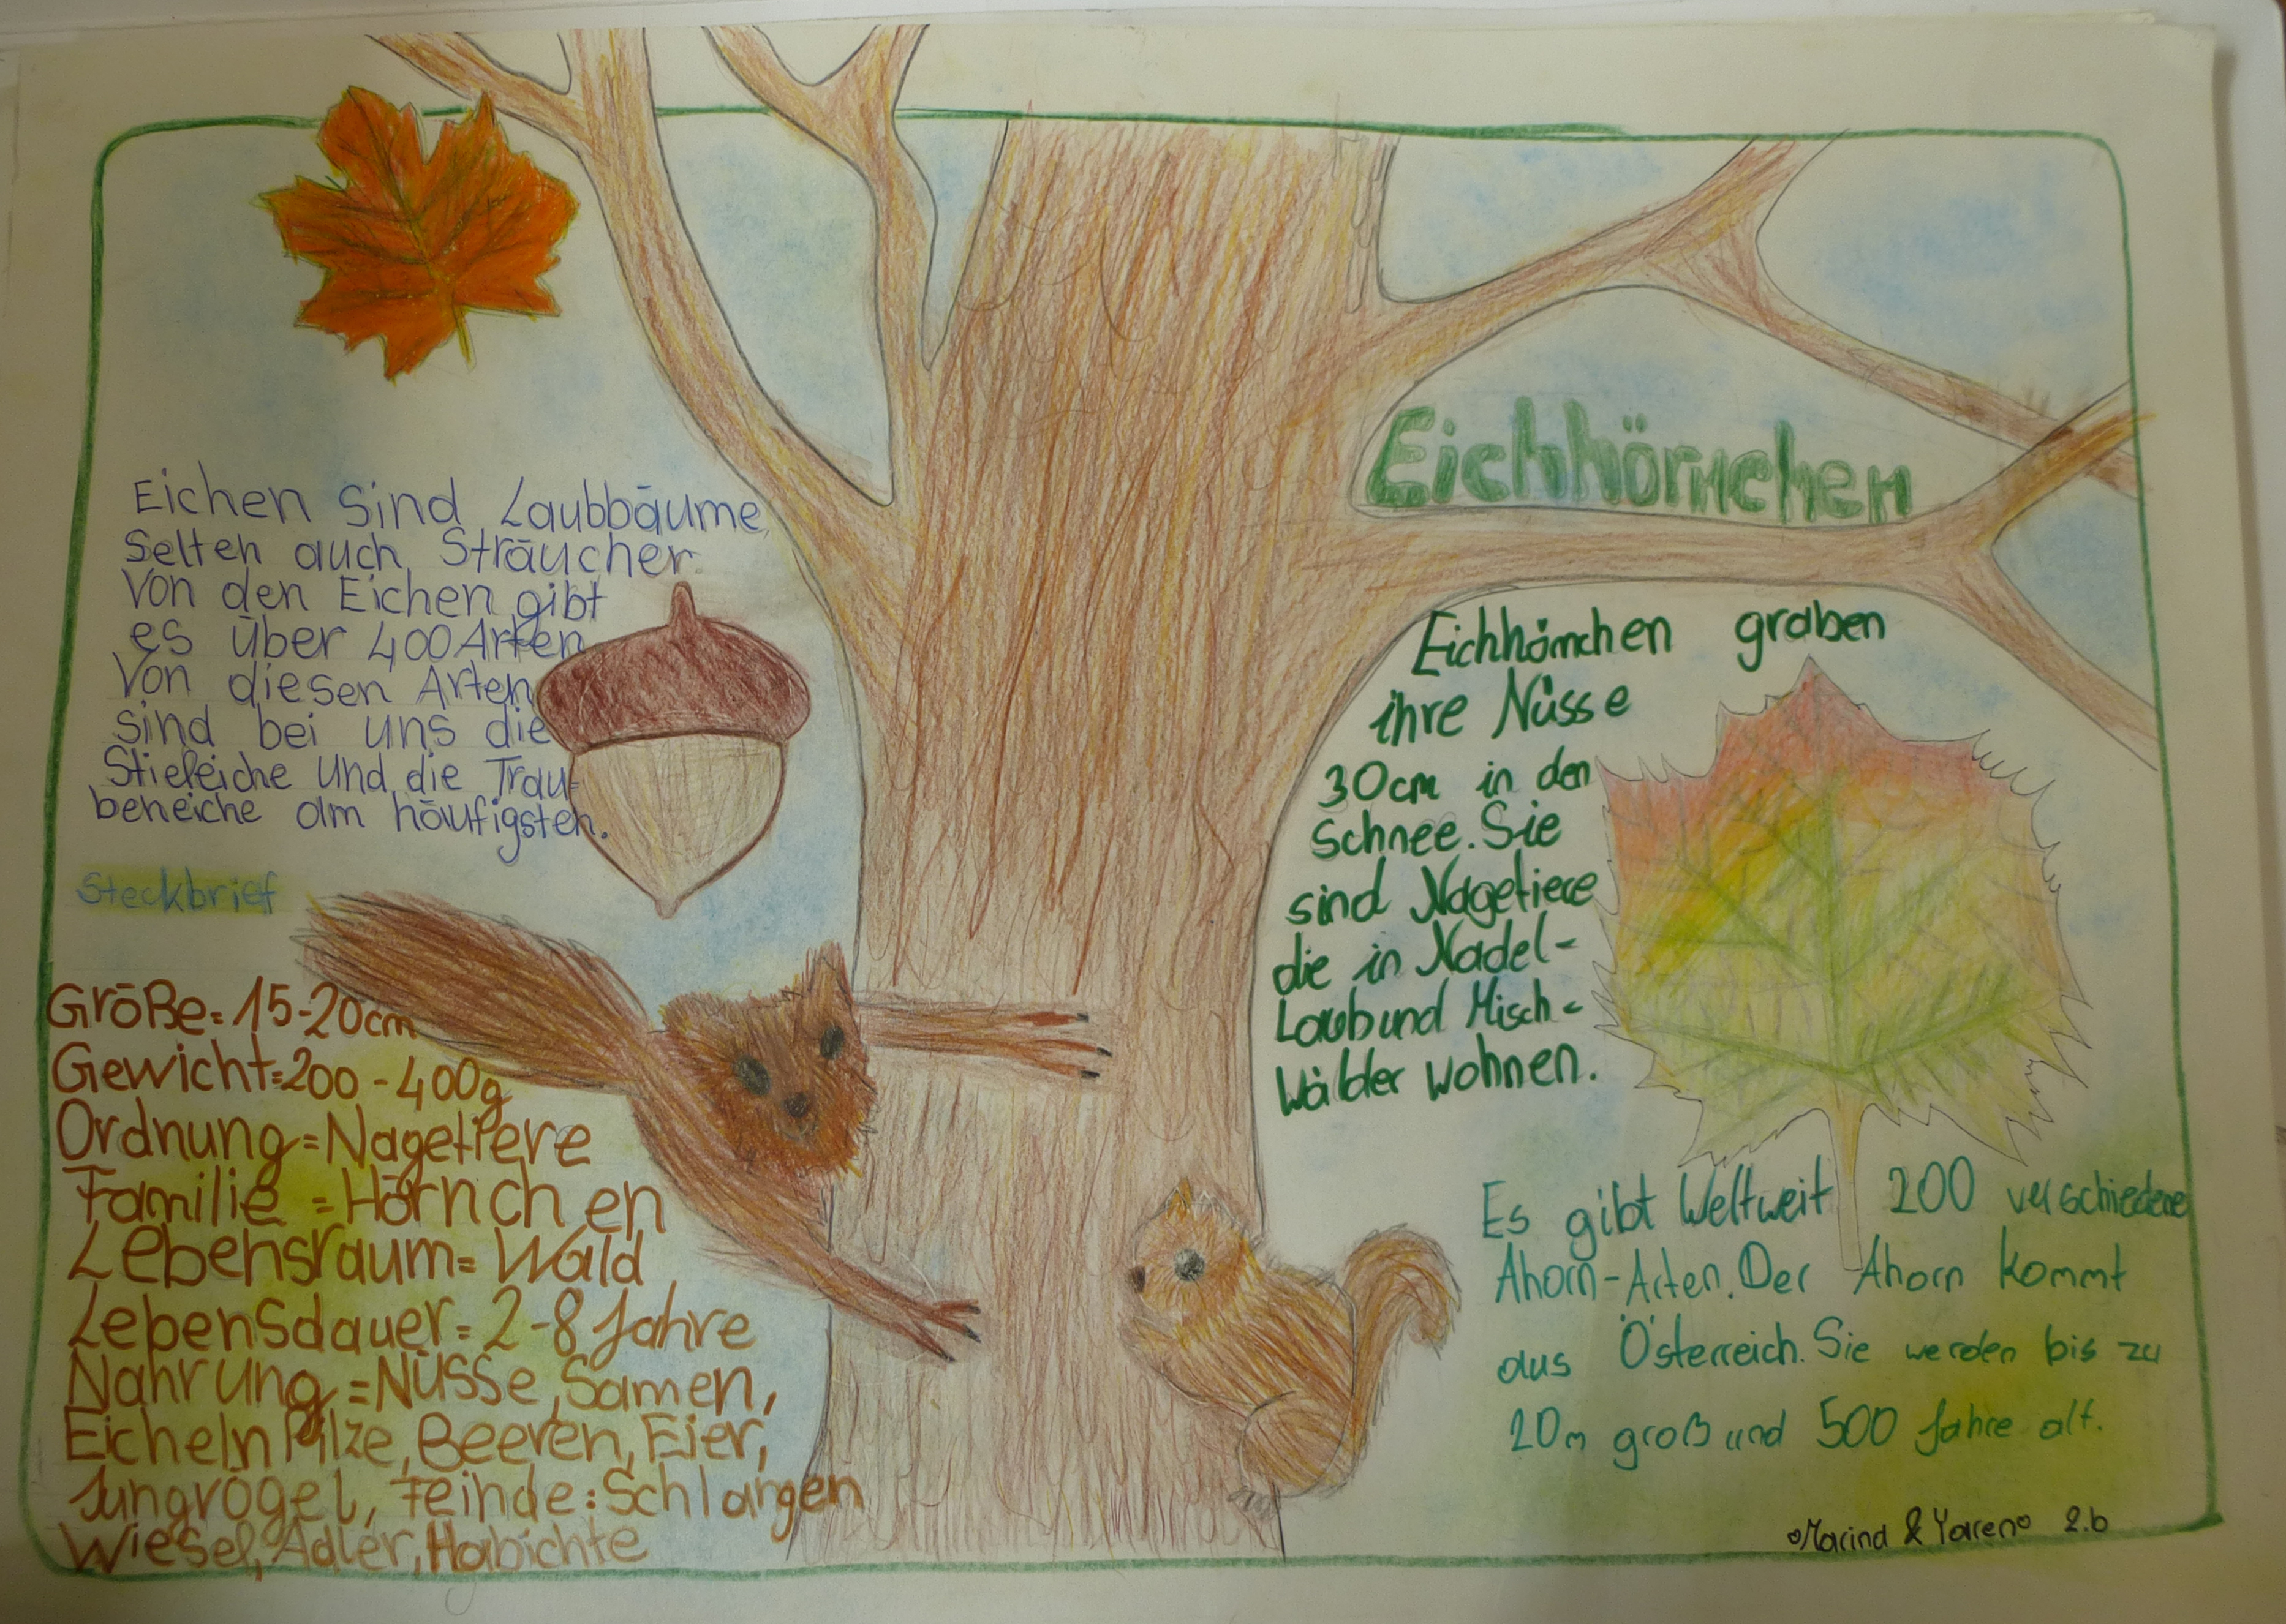 Eichhörnchen
Eichen sind Laubbäume,
selten auch Sträucher.
Von den Eichen gibt
es über 400 Arten
Von diesen Arten
sind bei uns die
Stieleiche und die Trau-
beneiche am häufigsten.
Steckbrief
Größe: 15-20cm
Gewicht=200-400g
Ordnung=Nagetiere
Familie=Hörnchen
Lebensraum=Wald
Lebensdauer=2-8 Jahre
Nahrung=Nüsse,Samen,
Eicheln Pilze,Beeren,Eier,
Jungvögel, Feinde:Schlangen
Wiesel,Adler,Habichte
Eichhörnchen graben
ihre Nüsse
30cm in den
Schnee. Sie
sind Nagetiere
die in Nadel-
Laub und Misch-
Wälder wohnen.
Es gibt Weltweit 200 verschiedene
Ahorn-Arten. Der Ahorn kommt
aus Österreich. Sie werden bis zu
20m groß und 500 Jahre alt.
Marina & Yaren 2.b